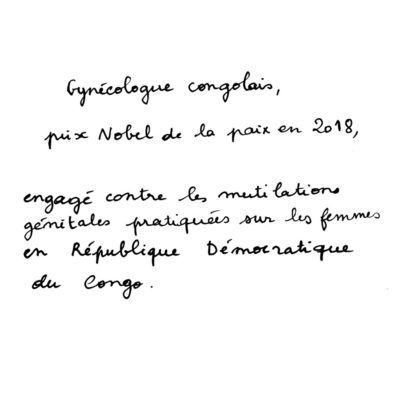 Gynécologue congolais,
prix Nobel de la paix en 2018,
engagé contre les mutilations
génitales pratiquées sur les femmes
en République Démocratique
du Congo.